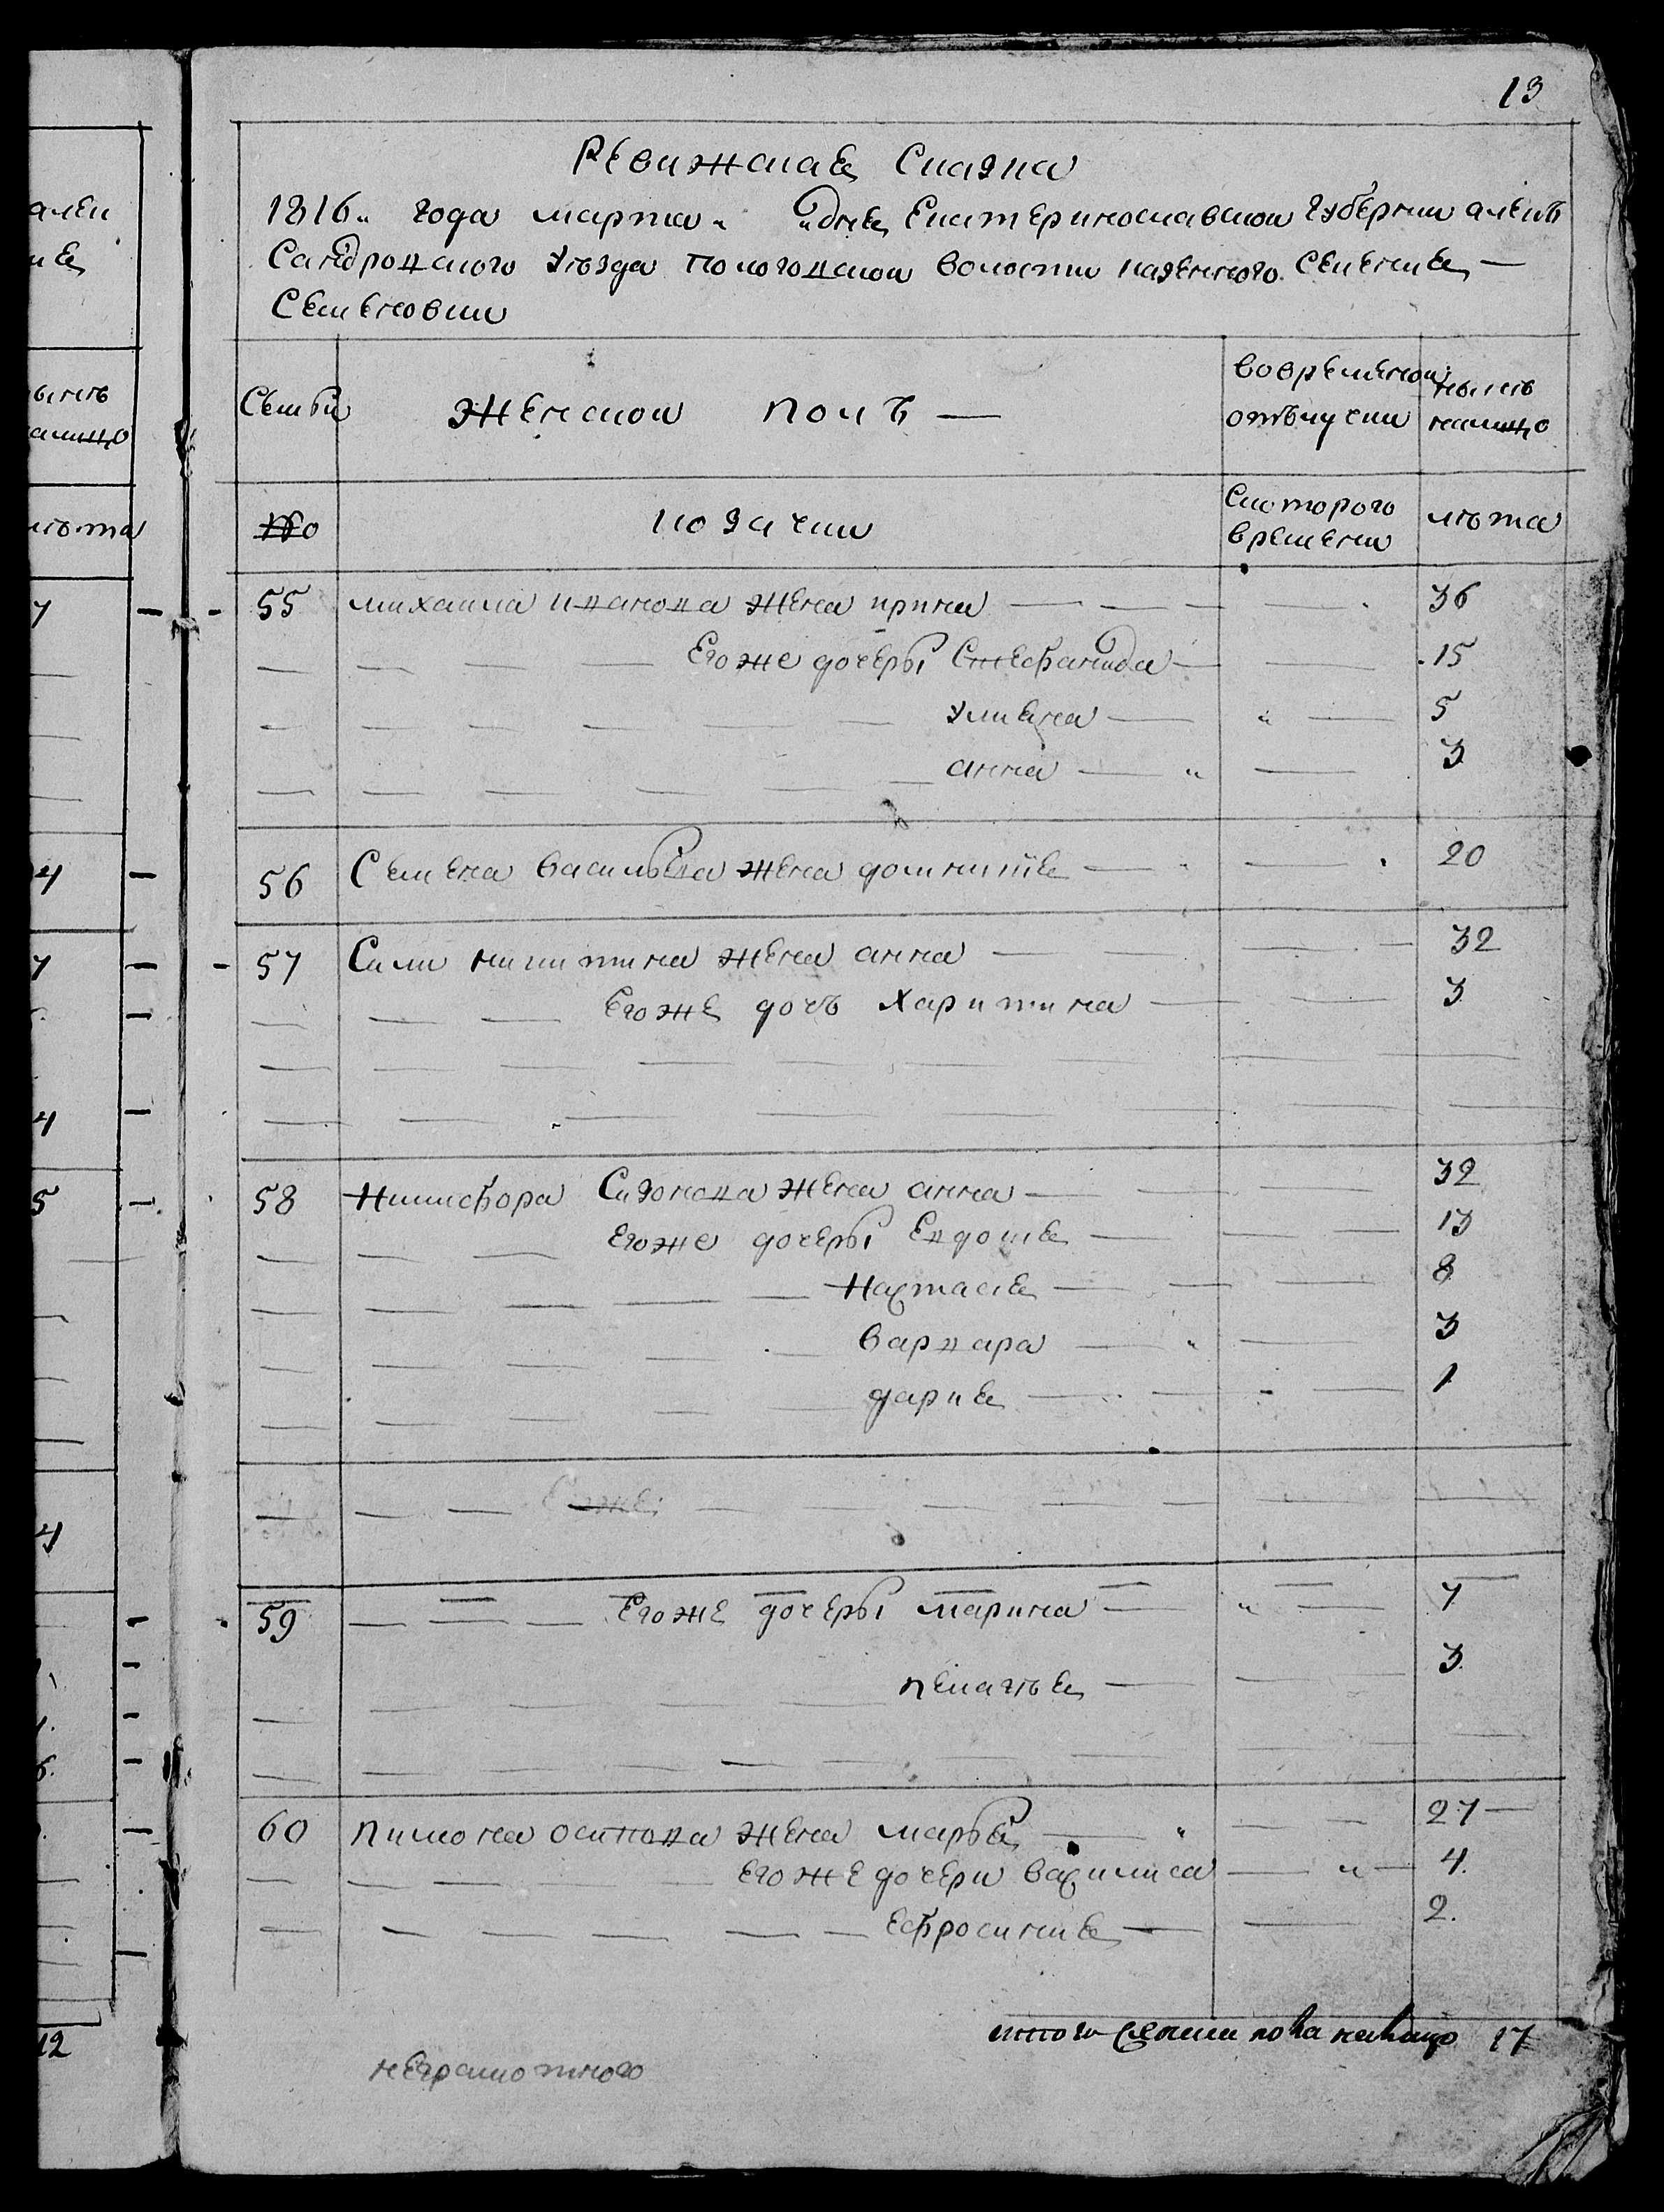 13
Ревижская Сказка
1816„ года марта „ „ дня Екатеринославской губернии алекъ
Сандровского уѣзда Пологовской волости казенного селения —
Семеновки
Семьи женской полъ — во временной отълучки нынѣ налицо
№о казачки С которого времени лѣта
55 михаила иванова жена ирина 36
Его же дочеры Стефанида 15
улияна 5
анна 3
56 Семена василъева жена домникия 20
57 Силы никитина жена анна 32
Его же дочъ харитина 3
58 Никифора Сазонова жена анна 32
Его же дочеры Евдокия 13
Настасия 8
варвара 3
дария 1
Его же
59 Его же дочеры марина 7
пелагѣя 3
60 пимона осипова жена марья 27
Его же дочери василиса 4
Ефросиния 2
итого женска пола налицо 17
неграмотного
алек
ия
ынѣ
алицо
лѣта
7
4
7
4
5
4
12